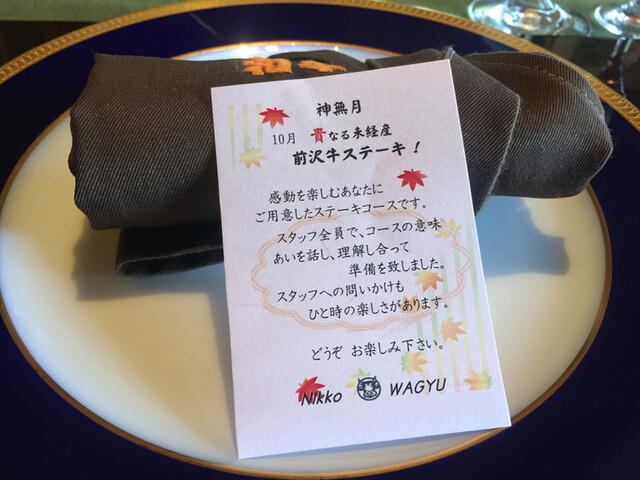 神無月
10月 貴なる未経産
前沢牛ステーキ！
感動を楽しむあなたに
ご用意したステーキコースです。
スタッフ全員で、コースの意味
あいを話し、理解し合って
準備を致しました。
スタッフへの問いかけも
ひと時の楽しさがあります。
どうぞ お楽しみ下さい。
Nikko WAGYU